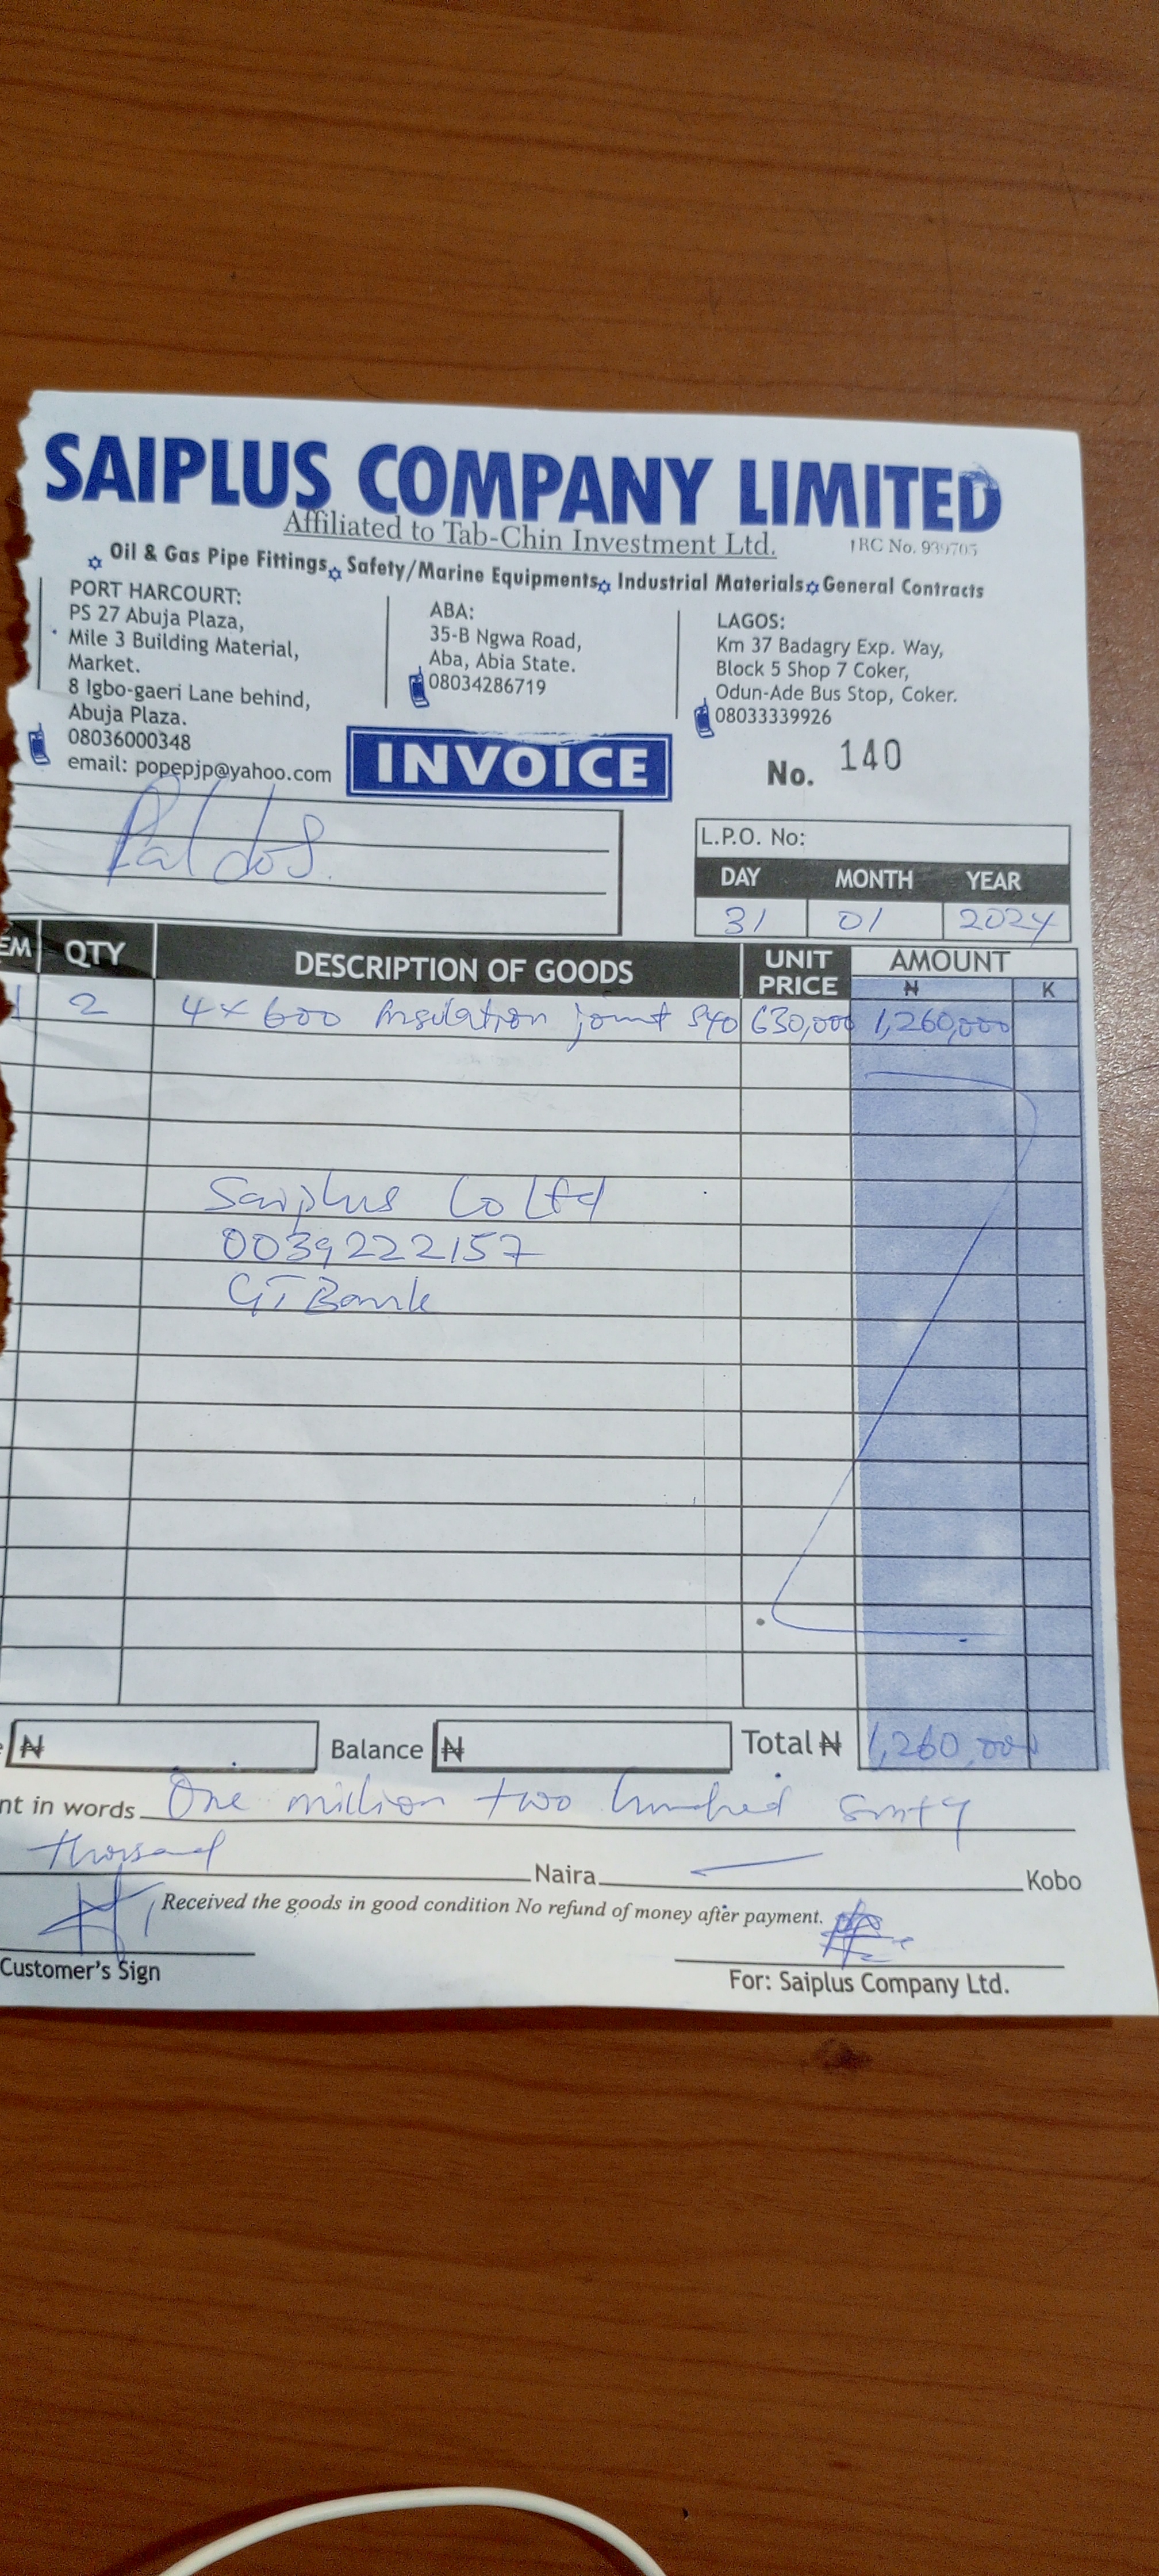 SAIPLUS COMPANY LIMITED
Affiliated to Tab-Chin Investment Ltd.
RC No. 939705
Oil & Gas Pipe Fittings Safety/Marine Equipments Industrial Materials General Contracts
PORT HARCOURT:
PS 27 Abuja Plaza,
Mile 3 Building Material,
Market.
8 Igbo-gaeri Lane behind,
Abuja Plaza.
08036000348
email: popepjp@yahoo.com
ABA:
35-B Ngwa Road,
Aba, Abia State.
08034286719
LAGOS:
Km 37 Badagry Exp. Way,
Block 5 Shop 7 Coker,
Odun-Ade Bus Stop, Coker.
08033339926
INVOICE
No. 140
L.P.O. No:
DAY MONTH YEAR
31 01 2024
EM QTY DESCRIPTION OF GOODS UNIT PRICE AMOUNT
₦ K
1 2 4 x 600 Insulation joint S40 630,000 1,260,000
Saiplus Co Ltd
0039222157
GTBank
₦ Balance ₦ Total ₦ 1,260,000
nt in words One million two hundred sixty
thousand Naira Kobo
Received the goods in good condition No refund of money after payment.
Customer's Sign
For: Saiplus Company Ltd.